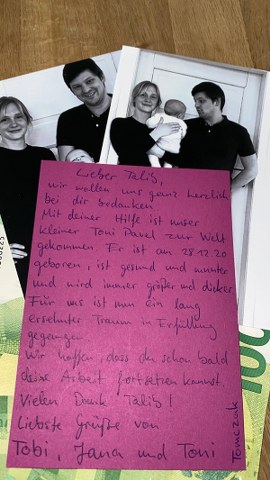 Lieber Talib,
wir wollen uns ganz herzlich
bei dir bedanken
Mit deiner Hilfe ist unser
kleiner Toni Pavel zur Welt
gekommen. Er ist am 28.12.20
geboren, ist gesund und munter
und wird immer größer und dicker
Für uns ist nun ein lang
ersehnter Traum in Erfüllung
gegangen
Wir hoffen, dass du schon bald
deine Arbeit fortsetzen kannst.
Vielen Dank Talib!
Liebste Grüße von
Tobi, Jana und Toni
Tomczak
100